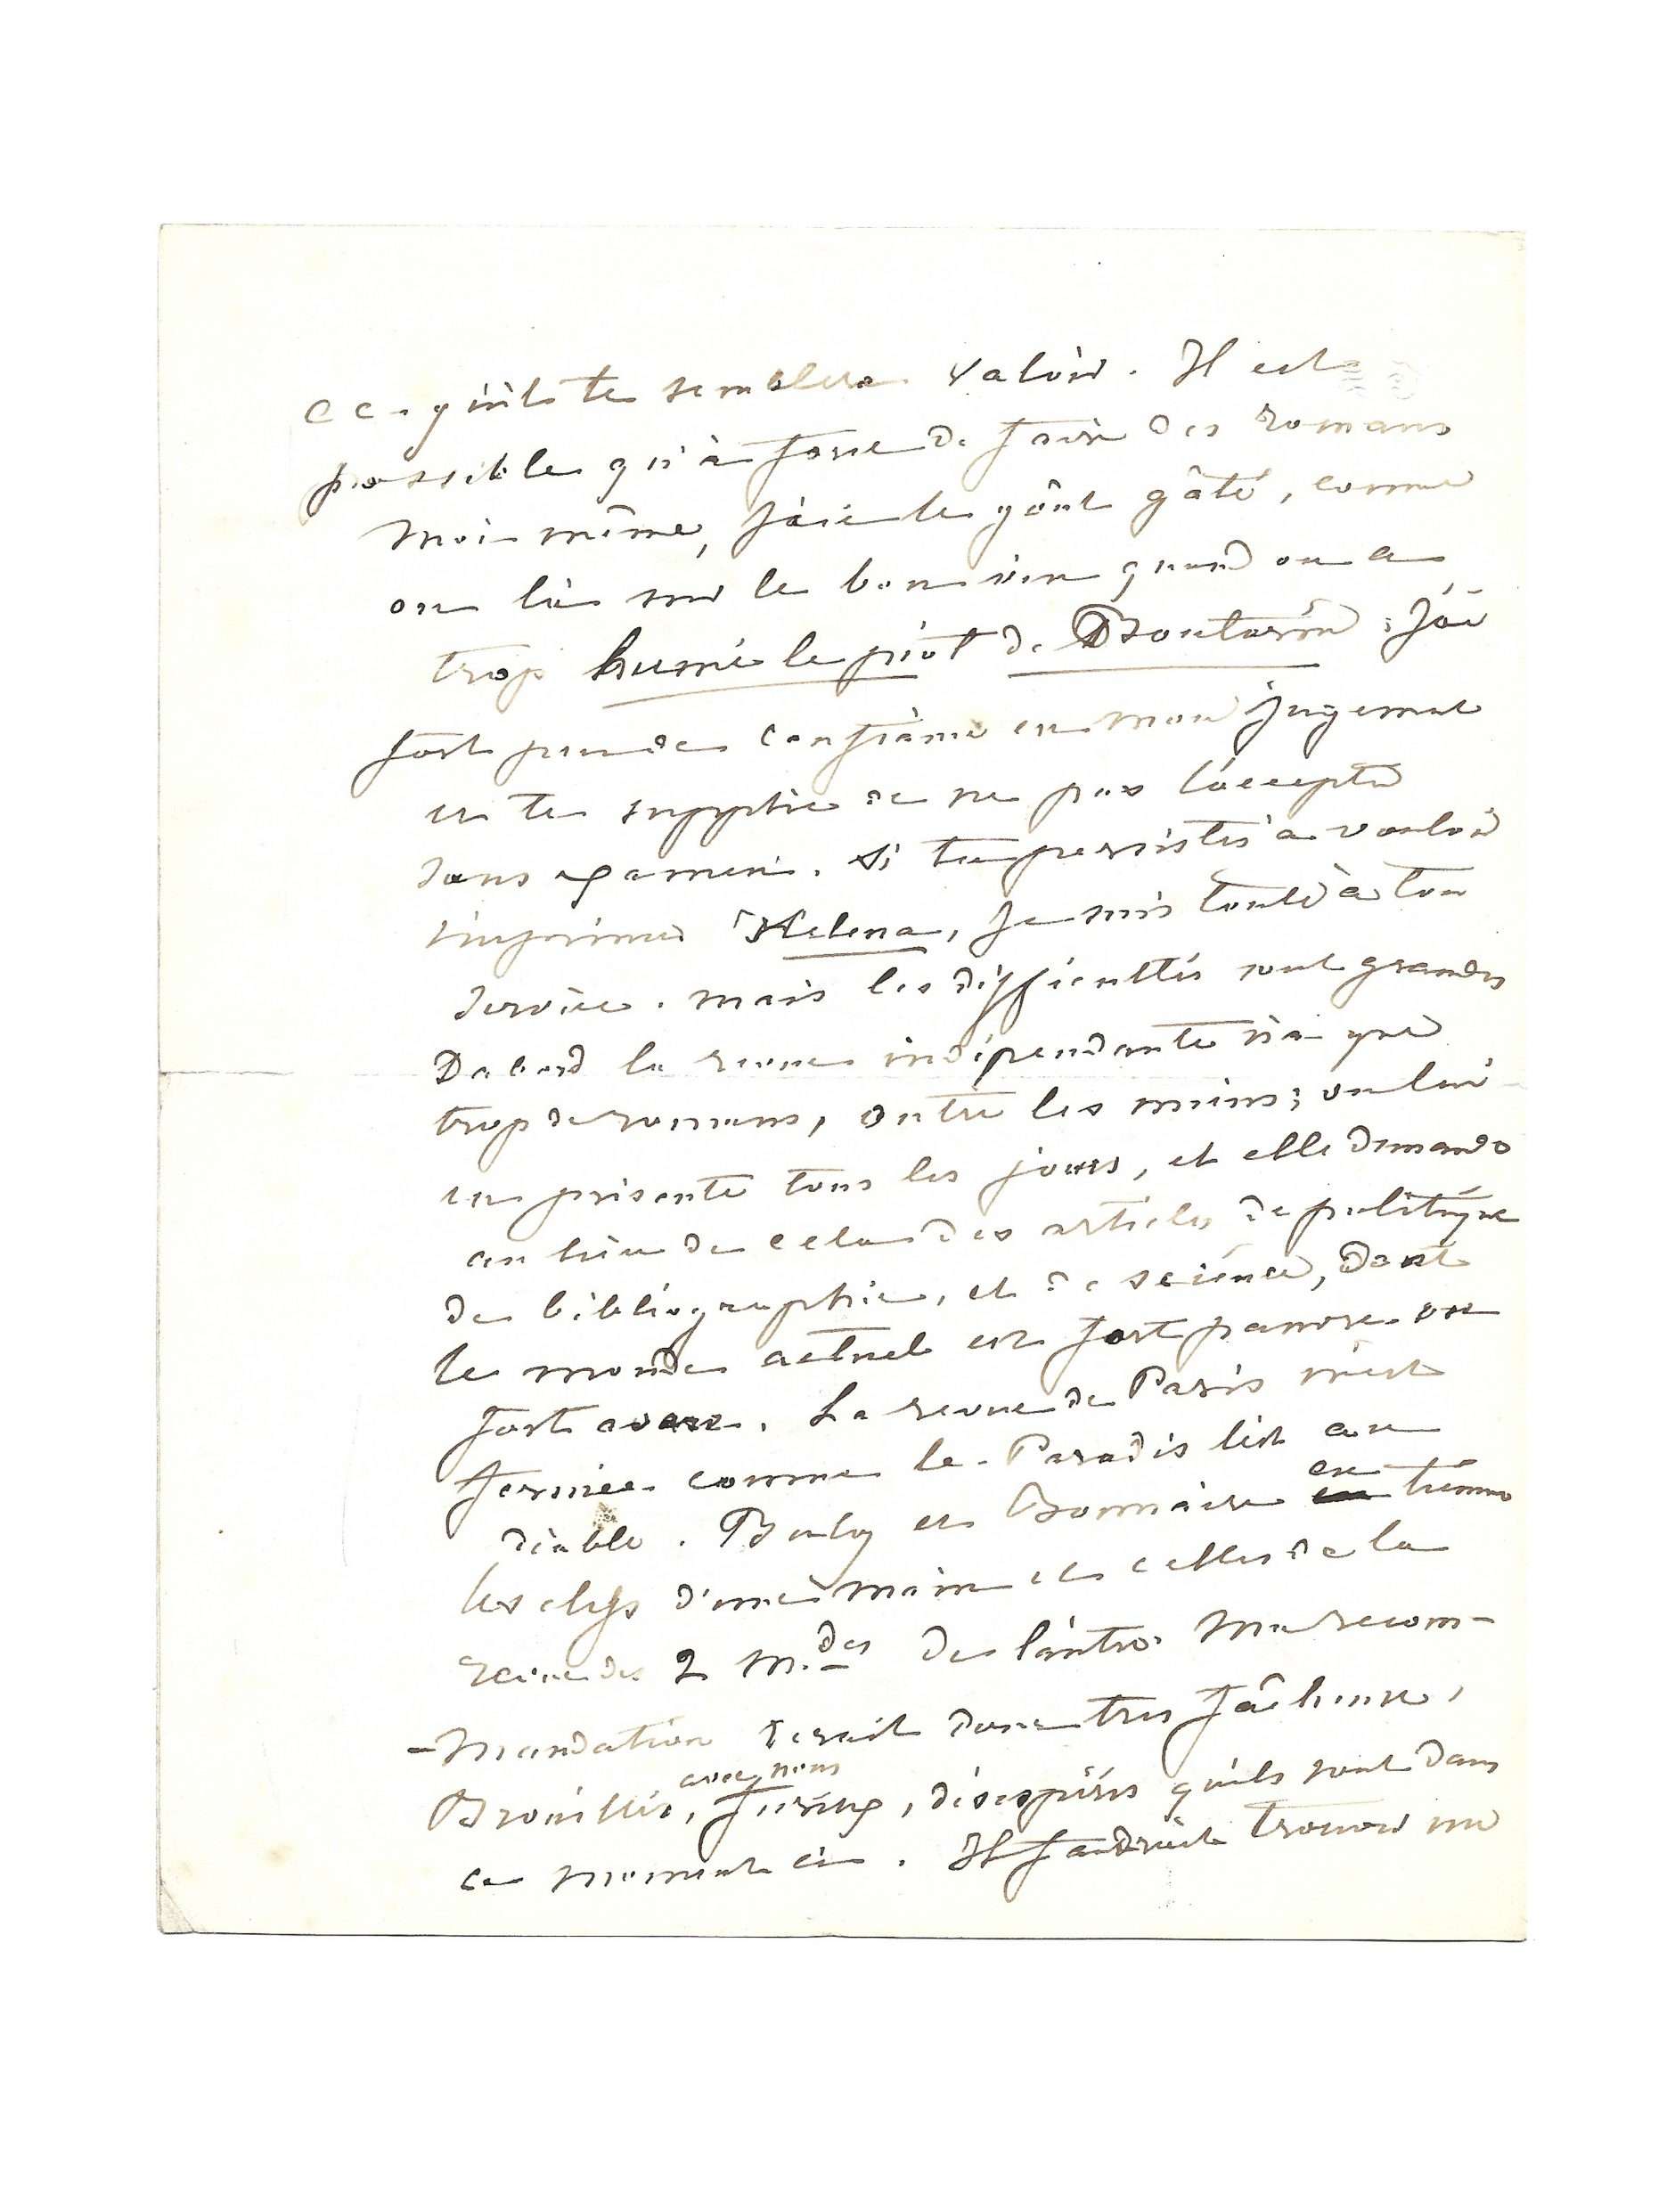 ce qu'il te semblera valoir. Il est
possible qu'à force de faire des romans
moi même, j'aie le goût gâté, comme
on l'a sur le bon vin quand on a
trop humé le piot de : j'ai
fort peu de confiance en mon jugement
et te supplie de ne pas l'accepter
sans examen. Si tu persistes à vouloir
imprimer Helena, je suis toute à ton
service. mais les difficultés sont grandes
Dabord la revue indépendante n'a que
trop de romans, entre les miens; on lui
en présente tous les jours, et elle demande
au lieu de cela des articles de politique
de bibliographie, et de science, dont
le monde actuel est fort pauvre ou
fort avare. La revue de Paris m'est
fermée comme le Paradis l'est au
diable. Buloz et Bonnaire en tiennent
les clefs d'une main et celles de la
revue des 2 M.des de l'autre. Ma recom-
-mandation serait donc très fâcheuse,
Brouillés avec nous, furieux, désespérés qu'ils sont dans
ce moment ci. Il faudrait trouver un